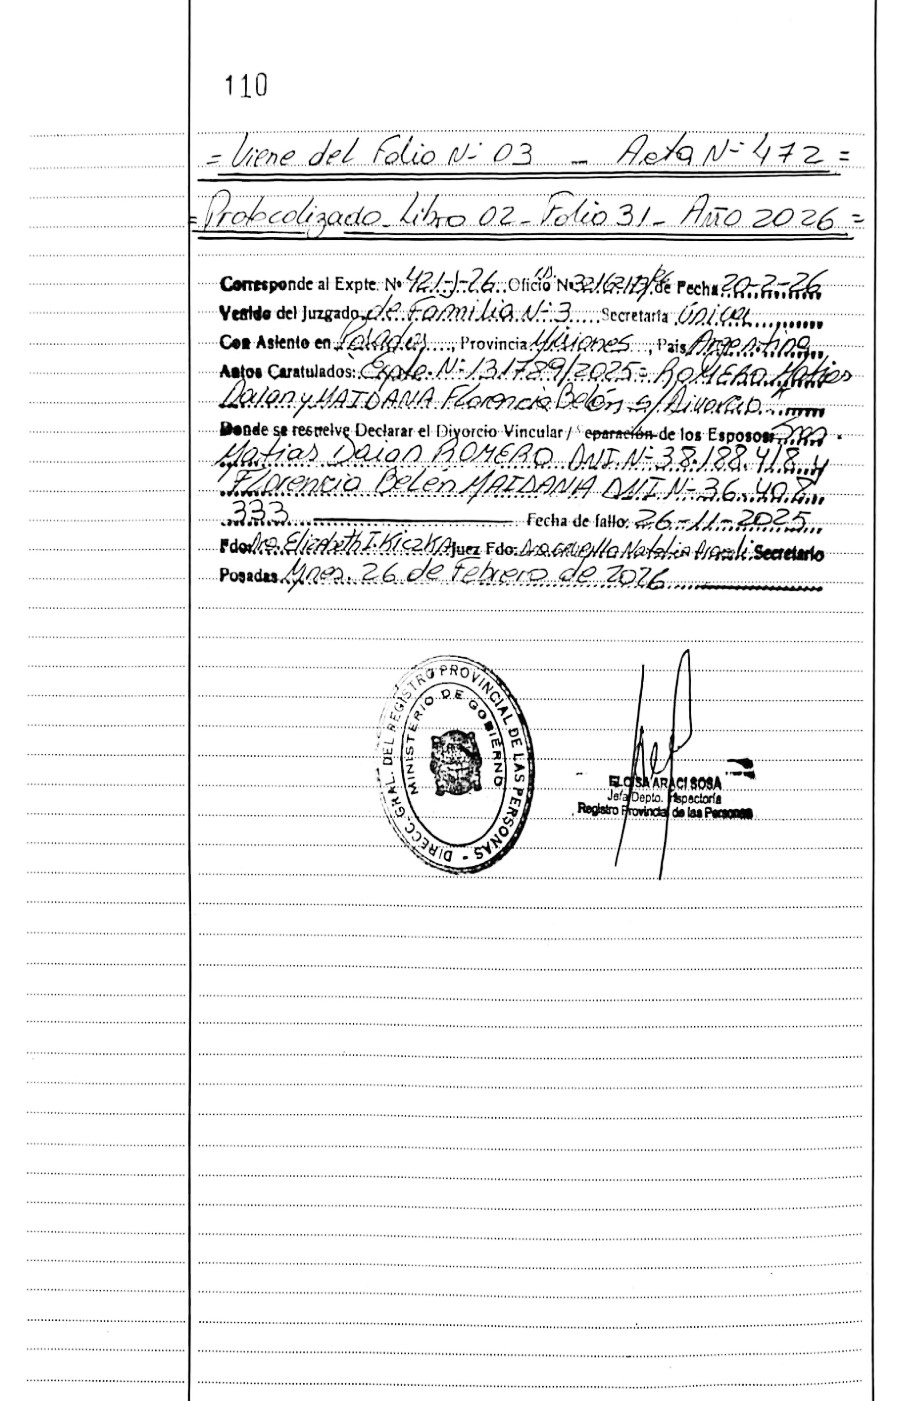 110
= Viene del Folio N° 03 _ Acta N° 472 =
= Protocolizado - Libro 02 - Folio 31 - Año 2026 =
Corresponde al Expte. Nº 421-J-26. Oficio N° de Fecha 20-2-26
Venido del Juzgado de Familia N° 3 Secretaría Única
Con Asiento en Posadas, Provincia Misiones, Pais Argentina
Autos Caratulados: Expte. N° 131789/2025 - ROMERO Matias
Daian y MAIDANA Florencia Belén s/Divorcio
Donde se resuelve Declarar el Divorcio Vincular / Separación de los Esposos: Sres.
Matias Daian ROMERO DNI N° 38.188.418 y
Florencia Belén MAIDANA DNI N° 36.407.
333 Fecha de fallo: 26-11-2025
Fdo: Dra. Elizabeth I. Kiczka Juez Fdo: Dra. Natalia Secretario
Posadas, Mnes. 26 de Febrero de 2026
DIRECC. GRAL. DEL REGISTRO PROVINCIAL DE LAS PERSONAS -
MINISTERIO DE GOBIERNO
ELOISA ARACI SOSA
Jefa Depto. Inspectoría
Registro Provincial de las Personas